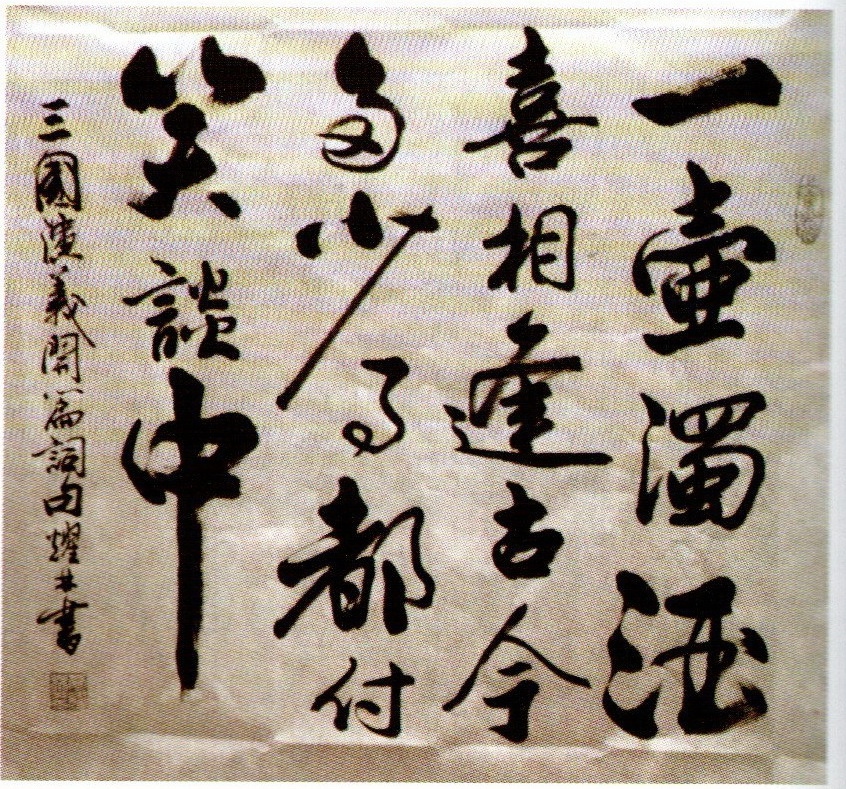 一壺濁酒
喜相逢古今
多少事都付
笑談中
三國演義開篇詞耀書